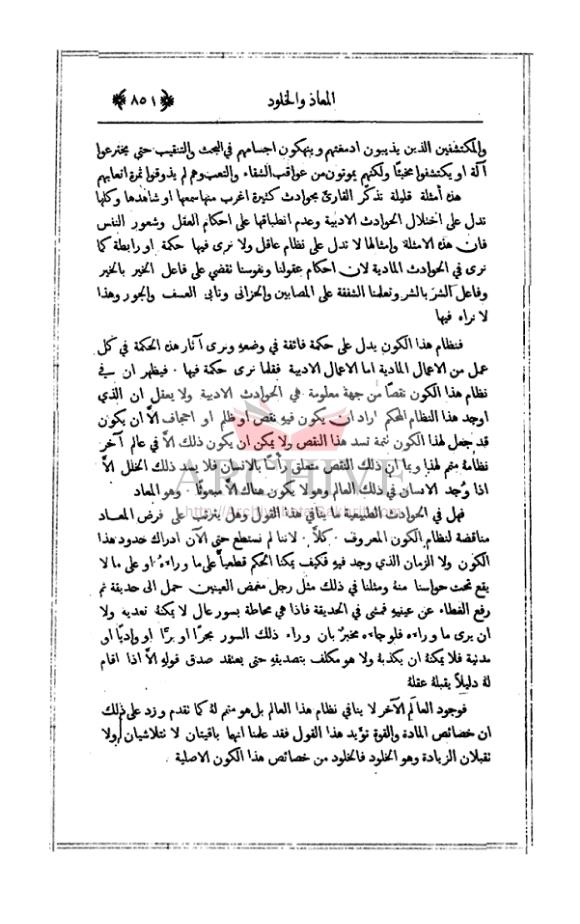 المعاد والخلود
﴿٨٥١﴾
والمكتشفين الذين يذيبون ادمغتهم وينهكون اجسامهم في البحث والتنقيب حتى يخترعوا
آلة او يكتشفوا مخبئًا ولكنهم يموتون من عواقب الشقاء والتعب وهم لم يذوقوا ثمرة اتعابهم
هذه أمثلة قليلة تذكّر القارئ بحوادث كثيرة اغرب منها سمعها او شاهدها وكلها
تدل على اختلال الحوادث الادبية وعدم انطباقها على احكام العقل وشعور النفس
فان هذه الامثلة وامثالها لا تدل على نظام عاقل ولا نرى فيها حكمة او رابطة كما
نرى في الحوادث المادية لان احكام عقولنا ونفوسنا نقضي على فاعل الخير بالخير
وفاعل الشرّ بالشر وتعلمنا الشفقة على المصابين والحزانى وتابى العسف والجور وهذا
لا نراه فيها
فنظام هذا الكون يدل على حكمة فائقة في وضعهِ ونرى آثار هذه الحكمة في كل
عمل من الاعمال المادية اما الاعمال الادبية فقلما نرى حكمة فيها ٠ فيظهر ان في
نظام هذا الكون نقصًا من جهة معلومة هي الحوادث الادبية ولا يعقل ان الذي
اوجد هذا النظام المحكم اراد ان يكون فيهِ نقص او ظلم او اجحاف الاّ ان يكون
قد جعل لهذا الكون تتمة تسد هذا النقص ولا يمكن ان يكون ذلك الاّ في عالم آخر
نظامهُ متمم لهذا وبما ان ذلك النقص متعلق بالانسان فلا يسد ذلك الخلل الاّ
اذا وُجد الانسان في ذلك العالم وهو لا يكون هناك الاّ مبعوثًا ٠ وهو المعاد
فهل في الحوادث الطبيعية ما ينافي هذا القول وهل يترتب على فرض المعاد
مناقضة لنظام الكون المعروف ٠ كلاَّ ٠ لاننا لم نستطع حتى الآن ادراك حدود هذا
الكون ولا الزمان الذي وجد فيهِ فكيف يمكنا الحكم قطعياً على ما وراءهُ او على ما لا
يقع تحت حواسنا منهُ ومثلنا في ذلك مثل رجل مغمض العينين حمل الى حديقة ثم
رفع الغطاء عن عينيهِ فمشى في الحديقة فاذا هي محاطة بسور عال لا يمكنهُ تعديه ولا
ان يرى ما وراءه فلو جاءه مخبرٌ بان وراء ذلك السور بحرًا او برًا او واديًا او
مدنية فلا يمكنهُ ان يكذبهُ ولا هو مكلف بتصديقهِ حتى يعتقد صدق قولهِ الاّ اذا اقام
لهُ دليلاً يقبلهُ عقلهُ
فوجود العالَم الآخر لا ينافي نظام هذا العالم بل هو متمم لهُ كما تقدم وزد على ذلك
ان خصائص المادة والقوة تؤيد هذا القول فقد علمنا انها باقيتان لا نتلاشيان ولا
تقبلان الزيادة وهو الخلود فالخلود من خصائص هذا الكون الاصلية
ARCHIVE